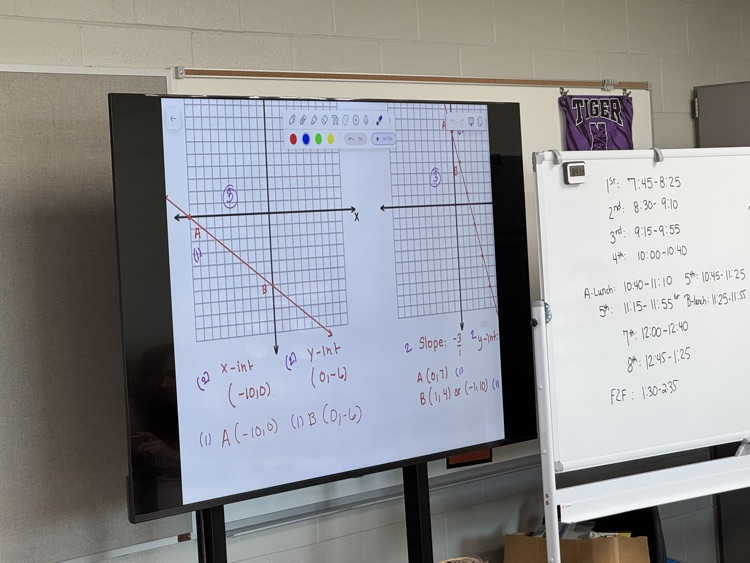 ③
x
A
(1)
B
(2) x-int
(-10,0)
(2) y-int
(0,-6)
(1) A (-10,0) (1) B (0,-6)
A
③
B
2 Slope: -3/1 2 y-int:
A (0,7) (1)
B (1,4) or (-1,10) (1)
TIGER
M
1st: 7:45-8:25
2nd: 8:30-9:10
3rd: 9:15-9:55
4th: 10:00-10:40
A-Lunch: 10:40-11:10 5th: 10:45-11:25
5th: 11:15-11:55 or B-lunch: 11:25-11:55
7th: 12:00-12:40
8th: 12:45-1:25
F2F: 1:30-2:35